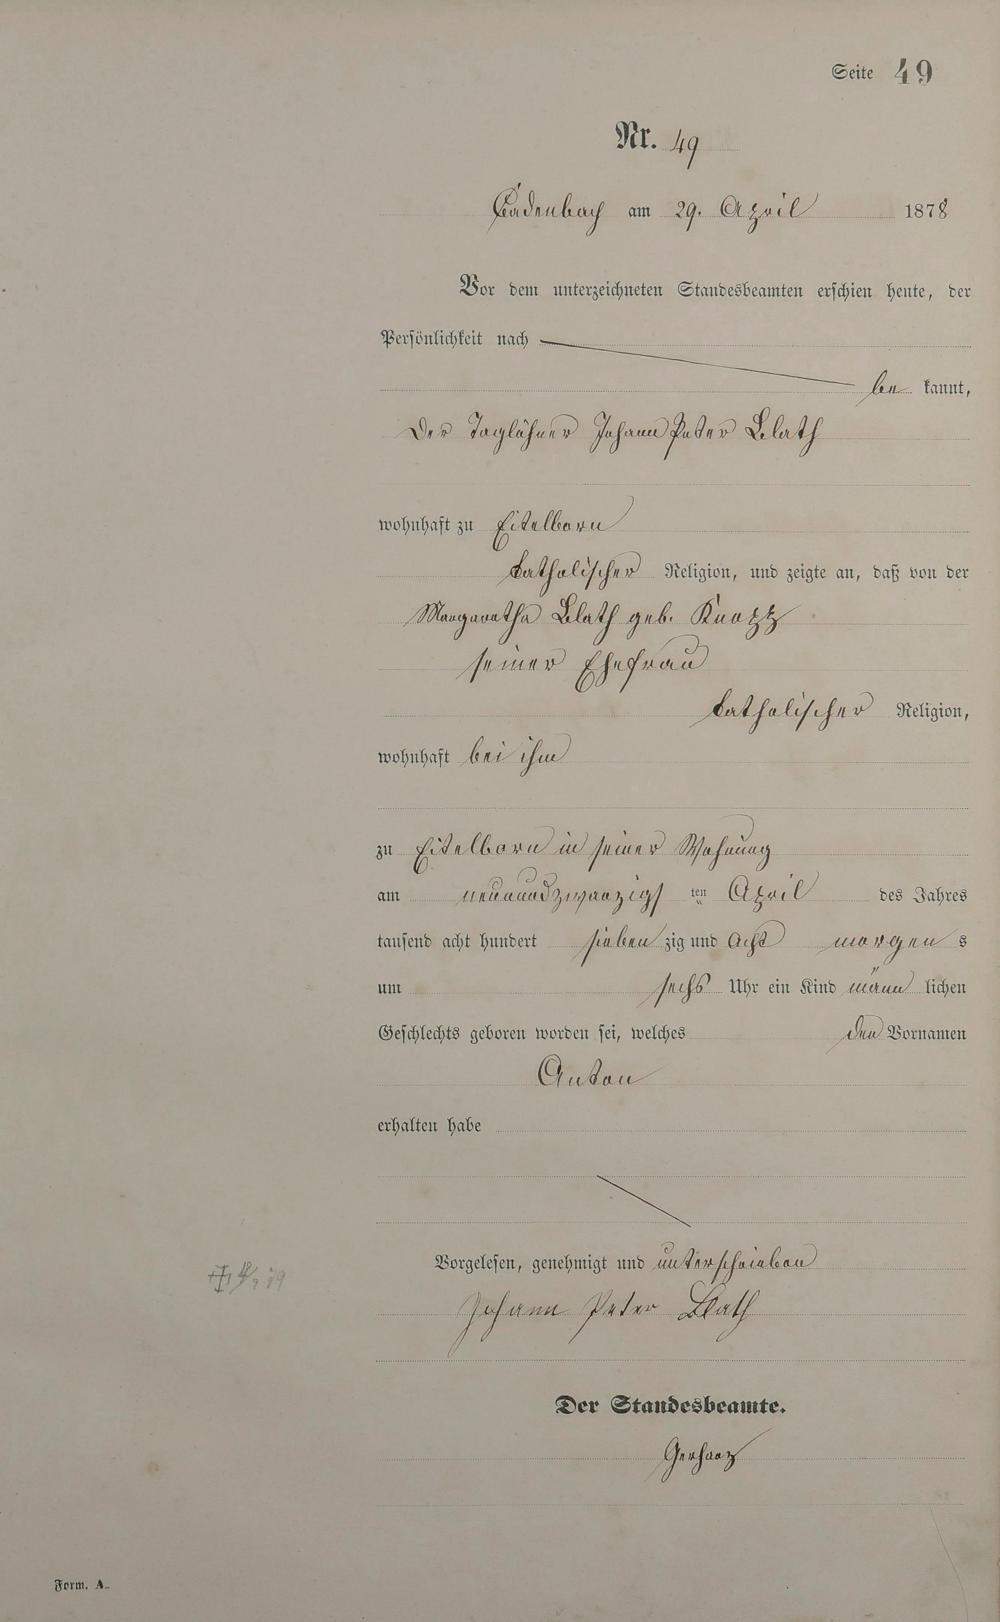 Seite 49
Nr. 49
Cadenbach am 29. April 1878
Vor dem unterzeichneten Standesbeamten erschien heute, der
Persönlichkeit nach
be kannt,
der Taglöhner Johann Peter Blath
wohnhaft zu Eitelborn
katholischer Religion, und zeigte an, daß von der
Margaretha Blath geb. Knopp
seiner Ehefrau
katholischer Religion,
wohnhaft bei ihm
zu Eitelborn in seiner Wohnung
am neunundzwanzigs ten April des Jahres
tausend acht hundert sieben zig und acht morgen s
um sechs Uhr ein Kind männ lichen
Geschlechts geboren worden sei, welches den Vornamen
Anton
erhalten habe
Vorgelesen, genehmigt und unterschrieben
Johann Peter Blath
Der Standesbeamte.
Gerharz
Form. A.